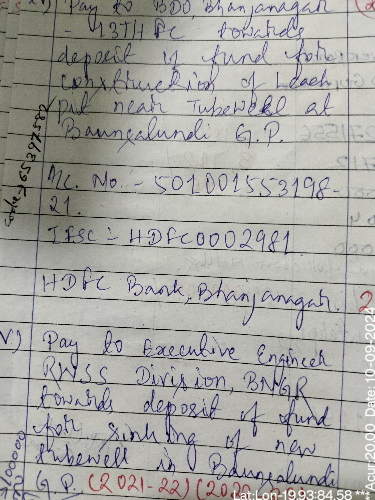 Pay to BDO, Bhanjanagar
- 13TH FC towards
deposit of fund for
construction of Leach
pit near Tubewell at
Baunsalundi G.P.
A/c. No. - 501001553198-
21.
IFSC :- HDFC0002981
HDFC Bank, Bhanjanagar.
V) Pay to Executive Engineer
RWSS Division, BNGR
towards deposit of fund
for sinking of new
tubewell in Baunsalundi
G.P. (2021-22)
Lat:Lon-19.93:84.58 *** Agur 2000 Date 10-09-2024